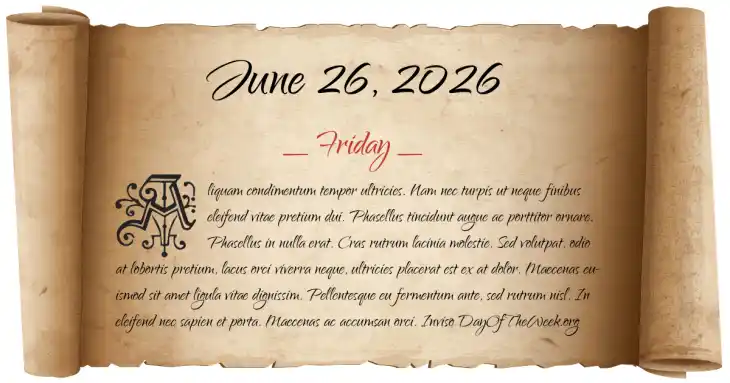 June 26, 2026
_ Friday _
Aliquam condimentum tempor ultricies. Nam nec turpis ut neque finibus
eleifend vitae pretium dui. Phasellus tincidunt augue ac porttitor ornare.
Phasellus in nulla erat. Cras rutrum lacinia molestie. Sed volutpat, odio
at lobortis pretium, lacus orci viverra neque, ultricies placerat est ex at dolor. Maecenas eu-
ismod sit amet ligula vitae dignissim. Pellentesque eu fermentum ante, sed rutrum nisl. In
eleifend nec sapien et porta. Maecenas ac accumsan orci. Inviso DayOfTheWeek.org